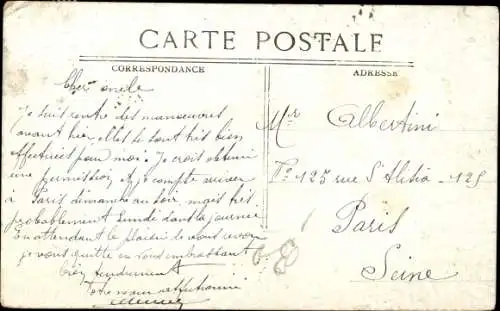 CARTE POSTALE
CORRESPONDANCE
ADRESSE
Cher oncle
Je suis rentré des manœuvres
avant hier, elles se sont très bien
effectuées pour moi. Je crois obtenir
une permission, et je compte arriver
à Paris dimanche au soir, mais très
probablement Lundi dans la journée
En attendant le plaisir de vous revoir
je vous quitte en vous embrassant
bien tendrement
Votre neveu affectionné
Mr Albertini
No 125 rue d'Alésia - 125
Paris
Seine